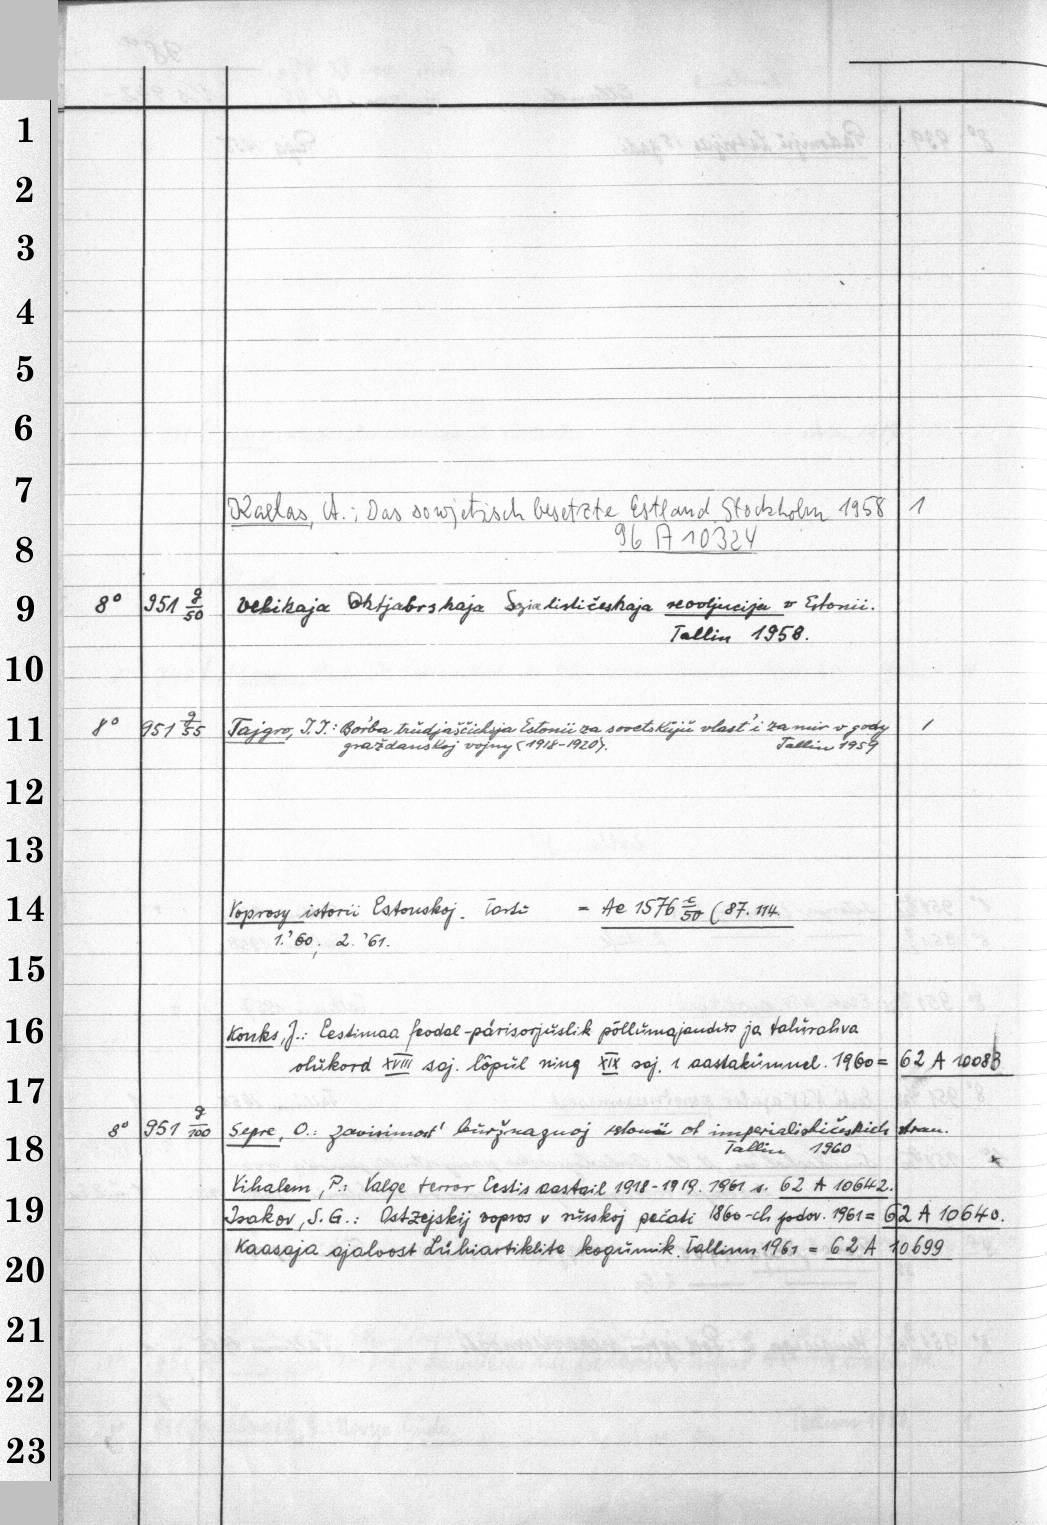 1
2
3
4
5
6
7
Kaelas, A.; Das sowjetisch besetzte Estland Stockholm 1958 1
96 A 10324
8
9 8° 951 g/50 Velikaja Oktjabrskaja Sozialističeskaja revoljucija v Estonii.
Tallin 1958.
10
11 8° 951 g/55 Tajgro, I.I.: Bor'ba trudjaščichsja Estonii za sovetskuju vlast' i za mir v gody 1
graždanskoj vojny (1918-1920). Tallin 1959
12
13
14 Voprosy istorii Estonskoj. Tartu = Ae 1576 c/50 (87. 114.
1.'60; 2. '61.
15
16 Konks, J.: Eestimaa feodal-pärisorjuslik põllumajandus ja talurahva
olukord XVIII saj. lõpul ning XIX saj. 1 aastakümnel. 1960 = 62 A 10083
17
8° 951 g/100 Sepre, O.: Zavisimost' buržuaznoj Estonii ot imperialističeskich stran.
18 Tallin 1960
Vihalem, P.: Valge terror Eestis aastail 1918-1919. 1961 s. 62 A 10642.
19 Isakov, S.G.: Ostzejskij vopros v russkoj pečati 1860-ch godov. 1961 = 62 A 10640.
Kaasaja ajaloost Lühiartiklite kogumik. Tallinn 1961 = 62 A 10699
20
21
22
23